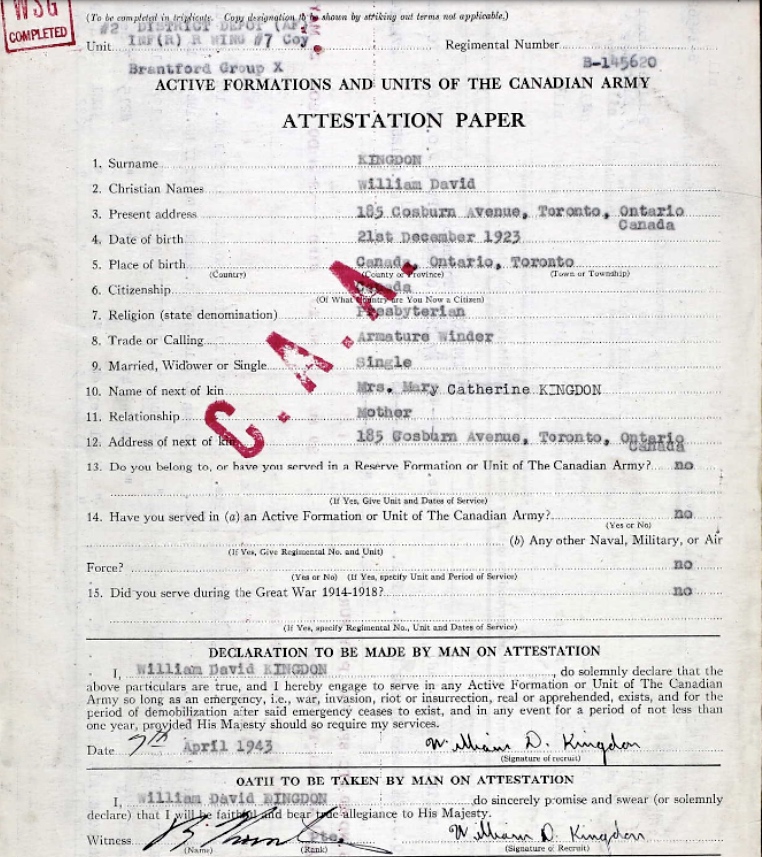 WSG
COMPLETED
(To be completed in triplicate. Copy designation to be shown by striking out terms not applicable.)
#2 DISTRICT DEPOT (AF)
Unit INF(R) R WING #7 Coy Regimental Number B-145620
Brantford Group X
ACTIVE FORMATIONS AND UNITS OF THE CANADIAN ARMY
ATTESTATION PAPER
1. Surname KINGDON
2. Christian Names William David
3. Present address 185 Cosburn Avenue, Toronto, Ontario
Canada
4. Date of birth 21st December 1923
5. Place of birth Canada, Ontario, Toronto
(Country) (County or Province) (Town or Township)
6. Citizenship Canada
(Of What Country are You Now a Citizen)
7. Religion (state denomination) Presbyterian
8. Trade or Calling Armature Winder
9. Married, Widower or Single Single
10. Name of next of kin Mrs. Mary Catherine KINGDON
11. Relationship Mother
12. Address of next of kin 185 Cosburn Avenue, Toronto, Ontario
Canada
C.A.A.
13. Do you belong to, or have you served in a Reserve Formation or Unit of The Canadian Army? no
(If Yes, Give Unit and Dates of Service)
14. Have you served in (a) an Active Formation or Unit of The Canadian Army? no
(Yes or No)
(b) Any other Naval, Military, or Air
(If Yes, Give Regimental No. and Unit)
Force? no
(Yes or No) (If Yes, specify Unit and Period of Service)
15. Did you serve during the Great War 1914-1918? no
(If Yes, specify Regimental No., Unit and Dates of Service)
DECLARATION TO BE MADE BY MAN ON ATTESTATION
I, William David KINGDON, do solemnly declare that the
above particulars are true, and I hereby engage to serve in any Active Formation or Unit of The Canadian
Army so long as an emergency, i.e., war, invasion, riot or insurrection, real or apprehended, exists, and for the
period of demobilization after said emergency ceases to exist, and in any event for a period of not less than
one year, provided His Majesty should so require my services.
Date 7th April 1943 William D. Kingdon
(Signature of recruit)
OATH TO BE TAKEN BY MAN ON ATTESTATION
I, William David KINGDON do sincerely promise and swear (or solemnly
declare) that I will be faithful and bear true allegiance to His Majesty.
Witness Pte. William D. Kingdon
(Name) (Rank) (Signature of Recruit)